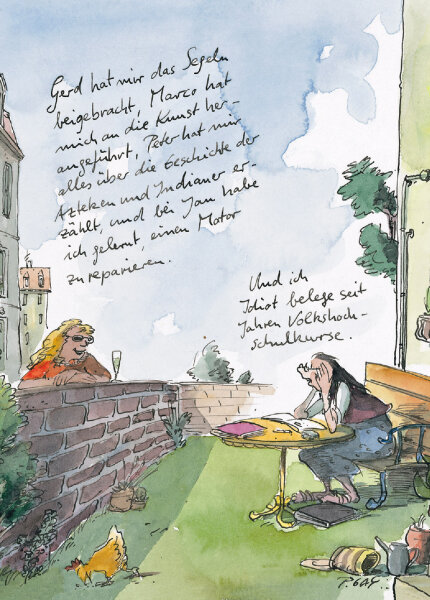 Gerd hat mir das Segeln
beigebracht, Marco hat
mich an die Kunst her-
angeführt, Peter hat mir
alles über die Geschichte der
Azteken und Indianer er-
zählt, und bei Jan habe
ich gelernt, einen Motor
zu reparieren.
Und ich
Idiot belege seit
Jahren Volkshoch-
schulkurse.
P. GAY